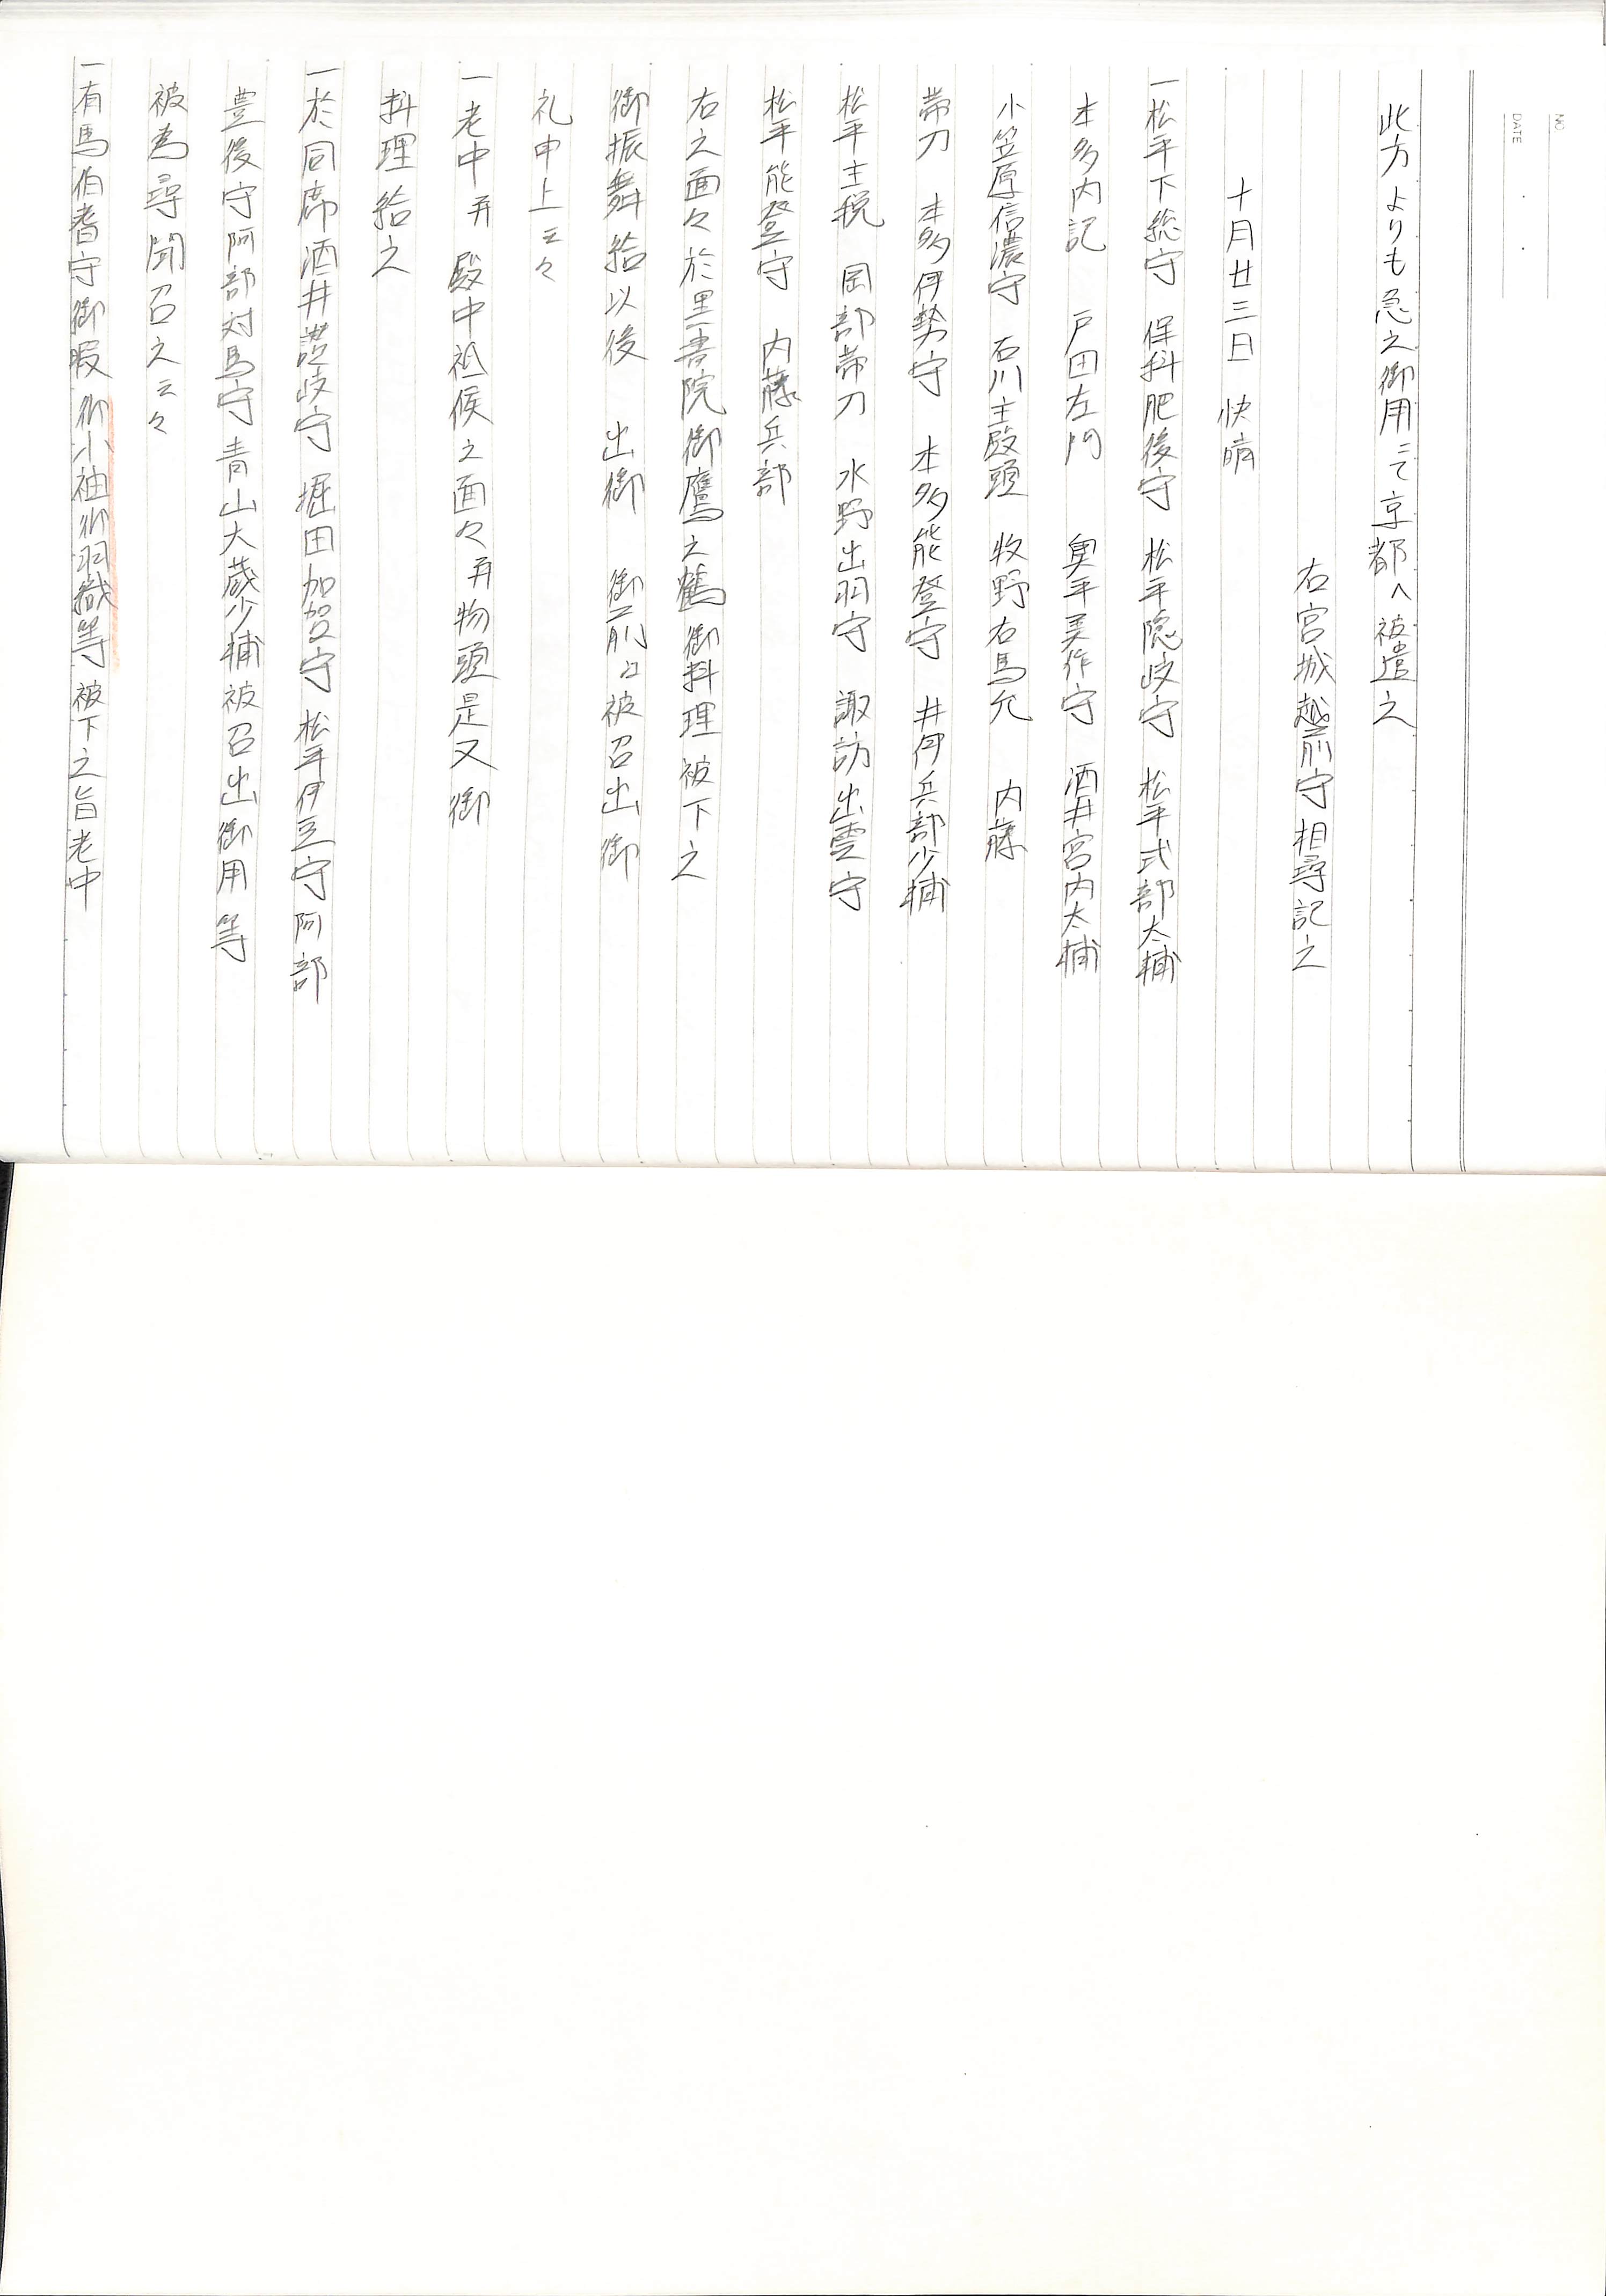 NO
DATE
此方よりも急之御用ニて京都へ被遣之
右宮城越前守相尋記之
十月廿三日 快晴
一松平下総守 保科肥後守 松平隠岐守 松平式部太輔
本多内記 戸田左門 奥平美作守 酒井宮内太輔
小笠原信濃守 石川主殿頭 牧野右馬允 内藤
帯刀 本多伊勢守 本多能登守 井伊兵部少輔
松平主税 岡部帯刀 水野出羽守 諏訪出雲守
松平能登守 内藤兵部
右之面々於黒書院御鷹之鶴御料理被下之
御振舞給以後 出御 御前江被召出御
礼申上云々
一老中并殿中祗候之面々并物頭是又御
料理給之
一於同席酒井讃岐守 堀田加賀守 松平伊豆守 阿部
豊後守阿部対馬守青山大蔵少輔被召出御用等
被為尋聞召之云々
一有馬伯耆守御暇御小袖御羽織等被下之旨老中